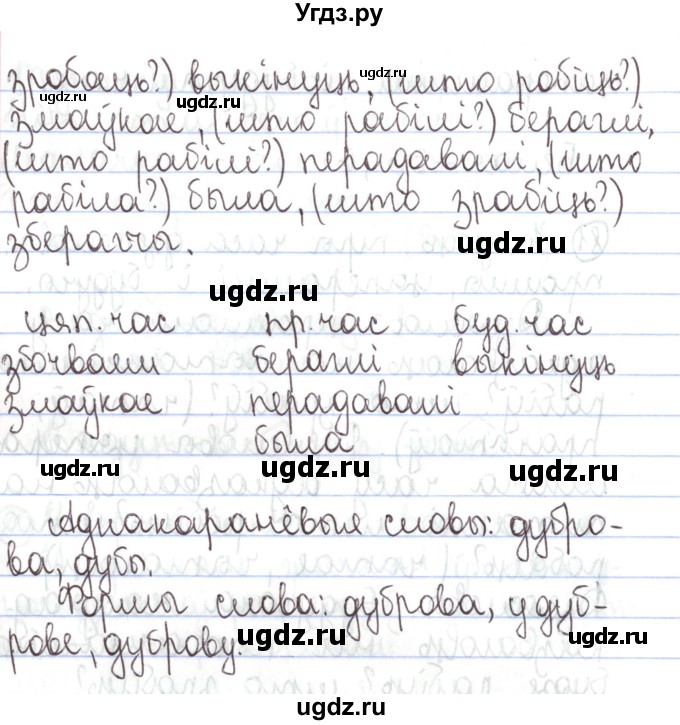 Угдз.ру
зробаць?) выкінуць, (што робіць?)
змаўкае, (што рабілі?) бераглі,
(што рабілі?) перадавалі, (што
рабіла?) была, (што зрабіць?)
зберагчы.
цяп. час пр. час буд. час
збочваем бераглі выкінуць
змаўкае перадавалі
была
Аднакаранёвыя словы: дубро-
ва, дубы.
Формы слова: дуброва, у дуб-
рове, дуброву.
ugdz.ru
ugdz.ru
ugdz.ru
ugdz.ru
ugdz.ru
ugdz.ru
ugdz.ru
ugdz.ru
ugdz.ru
ugdz.ru
ugdz.ru